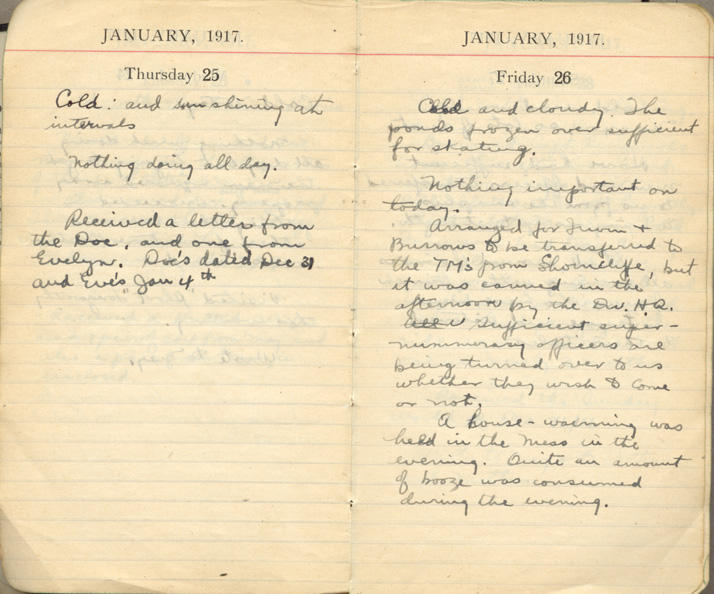 JANUARY, 1917.
Thursday 25
Cold: and sun shining at
intervals
Nothing doing all day.
Received a letter from
the Doc, and one from
Evelyn. Doc's dated Dec 31
and Eve's Jan 4th
JANUARY, 1917.
Friday 26
Cold and cloudy. The
ponds frozen over sufficient
for skating.
Nothing important on
today.
Arranged for Irwin +
Burrows to be transferred to
the TM's from Shorncliffe, but
it was canned in the
afternoon by the Div. H.Q.
Sufficient super-
nummerary officers are
being turned over to us
whether they wish to come
or not.
A house-warming was
held in the Mess in the
evening. Quite an amount
of booze was consumed
during the evening.